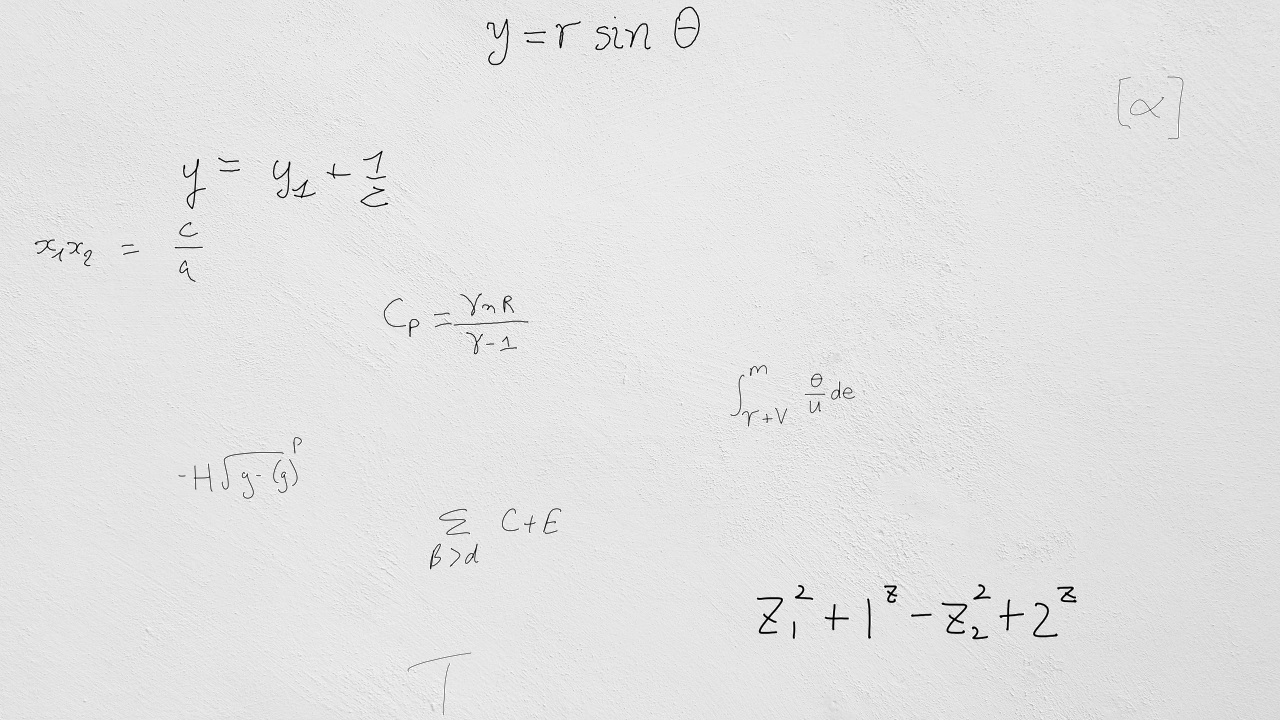 y = r sin θ
[α]
y = y₁ + 1/Σ
x₁x₂ = c/a
C_P = γnR/(γ-1)
∫_{r+V}^{m} θ/u de
-H√(y-(y)^p)
∑_{B>d} C+E
z₁² + 1^z - z₂² + 2^z
T